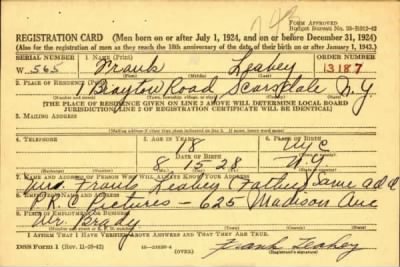 Form Approved
Budget Bureau No. 33-R012-42
REGISTRATION CARD (Men born on or after July 1, 1924, and on or before December 31, 1924)
(Also for the registration of men as they reach the 18th anniversary of the date of their birth on or after January 1, 1943.)
SERIAL NUMBER 1. NAME (Print) ORDER NUMBER
W 565 Frank Leahey 13187
(First) (Middle) (Last)
2. PLACE OF RESIDENCE (Print)
1 Brayton Road Scarsdale N.Y
[THE PLACE OF RESIDENCE GIVEN ON LINE 2 ABOVE WILL DETERMINE LOCAL BOARD
JURISDICTION; LINE 2 OF REGISTRATION CERTIFICATE WILL BE IDENTICAL]
3. MAILING ADDRESS
4. TELEPHONE 5. AGE IN YEARS 6. PLACE OF BIRTH
18 NYC
DATE OF BIRTH
8 15 28 N.Y
7. NAME AND ADDRESS OF PERSON WHO WILL ALWAYS KNOW YOUR ADDRESS
Mrs. Frank Leahey (Father) Same add
8. EMPLOYER'S NAME AND ADDRESS
Pictures - 625 Madison Ave
9. PLACE OF EMPLOYMENT OR BUSINESS
Mr. Brady
I AFFIRM THAT I HAVE VERIFIED ABOVE ANSWERS AND THAT THEY ARE TRUE.
DSS Form 1 (Rev. 11-16-42) (OVER) Frank Leahey
(Registrant's signature)